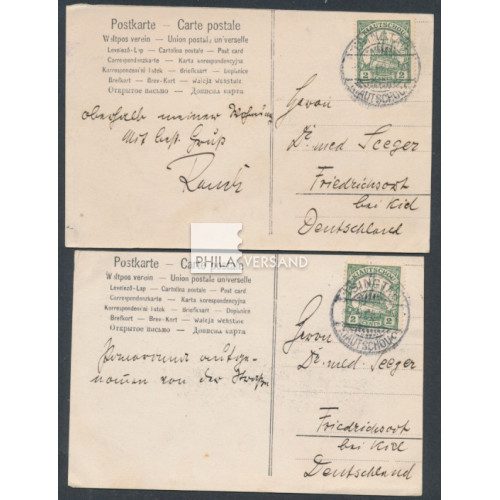 Postkarte – Carte postale
Weltpostverein – Union postale universelle
Levelező-Lap – Cartolina postale – Post card
Correspondenzkarte – Karta korespondencyjna
Korespondenční lístek – Dopisnice
Briefkaart – Brev-Kort – Waleçja wóbstotue
Открытое письмо – Дописна карта
KIAUTSCHOU
2
2
KIAUTSCHOU
oberhalb meiner Wohnung
Mit best. Gruß
Rauch
Herrn
Dr. med. Seeger
Friedrichsort
bei Kiel
Deutschland
PHILA VERSAND
Postkarte – Carte postale
Weltpostverein – Union postale universelle
Levelező-Lap – Cartolina postale – Post card
Correspondenzkarte – Karta korespondencyjna
Korespondenční lístek – Dopisnice
Briefkaart – Brev-Kort –
Открытое письмо – Дописна карта
KIAUTSCHOU
2 CENTS 2
TSINGTAU
KIAUTSCHOU
Panorama aufge-
nommen von der
Herrn
Dr. med. Seeger
Friedrichsort
bei Kiel
Deutschland